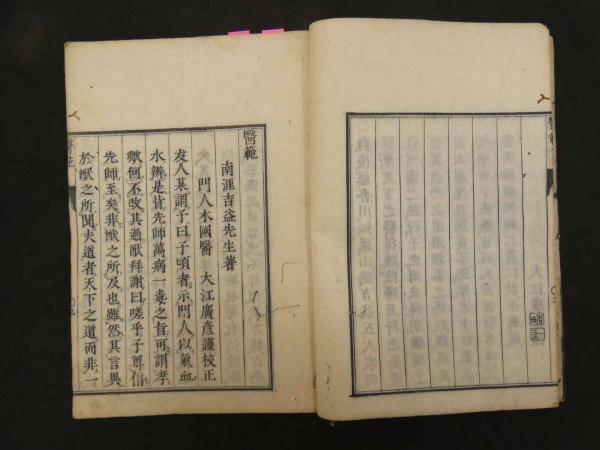 醫範
南涯吉益先生著
門人木國醫 大江廣彥謹校正
友人某謂予曰子頃者示門人以氣血
水辨是背先師萬病一毒之旨可謂孝
歟何不改其過猷拜謝曰嗟乎子尊信
先師至矣非猷之所及也雖然其言異
於猷之所聞夫道者天下之道而非一
醫範